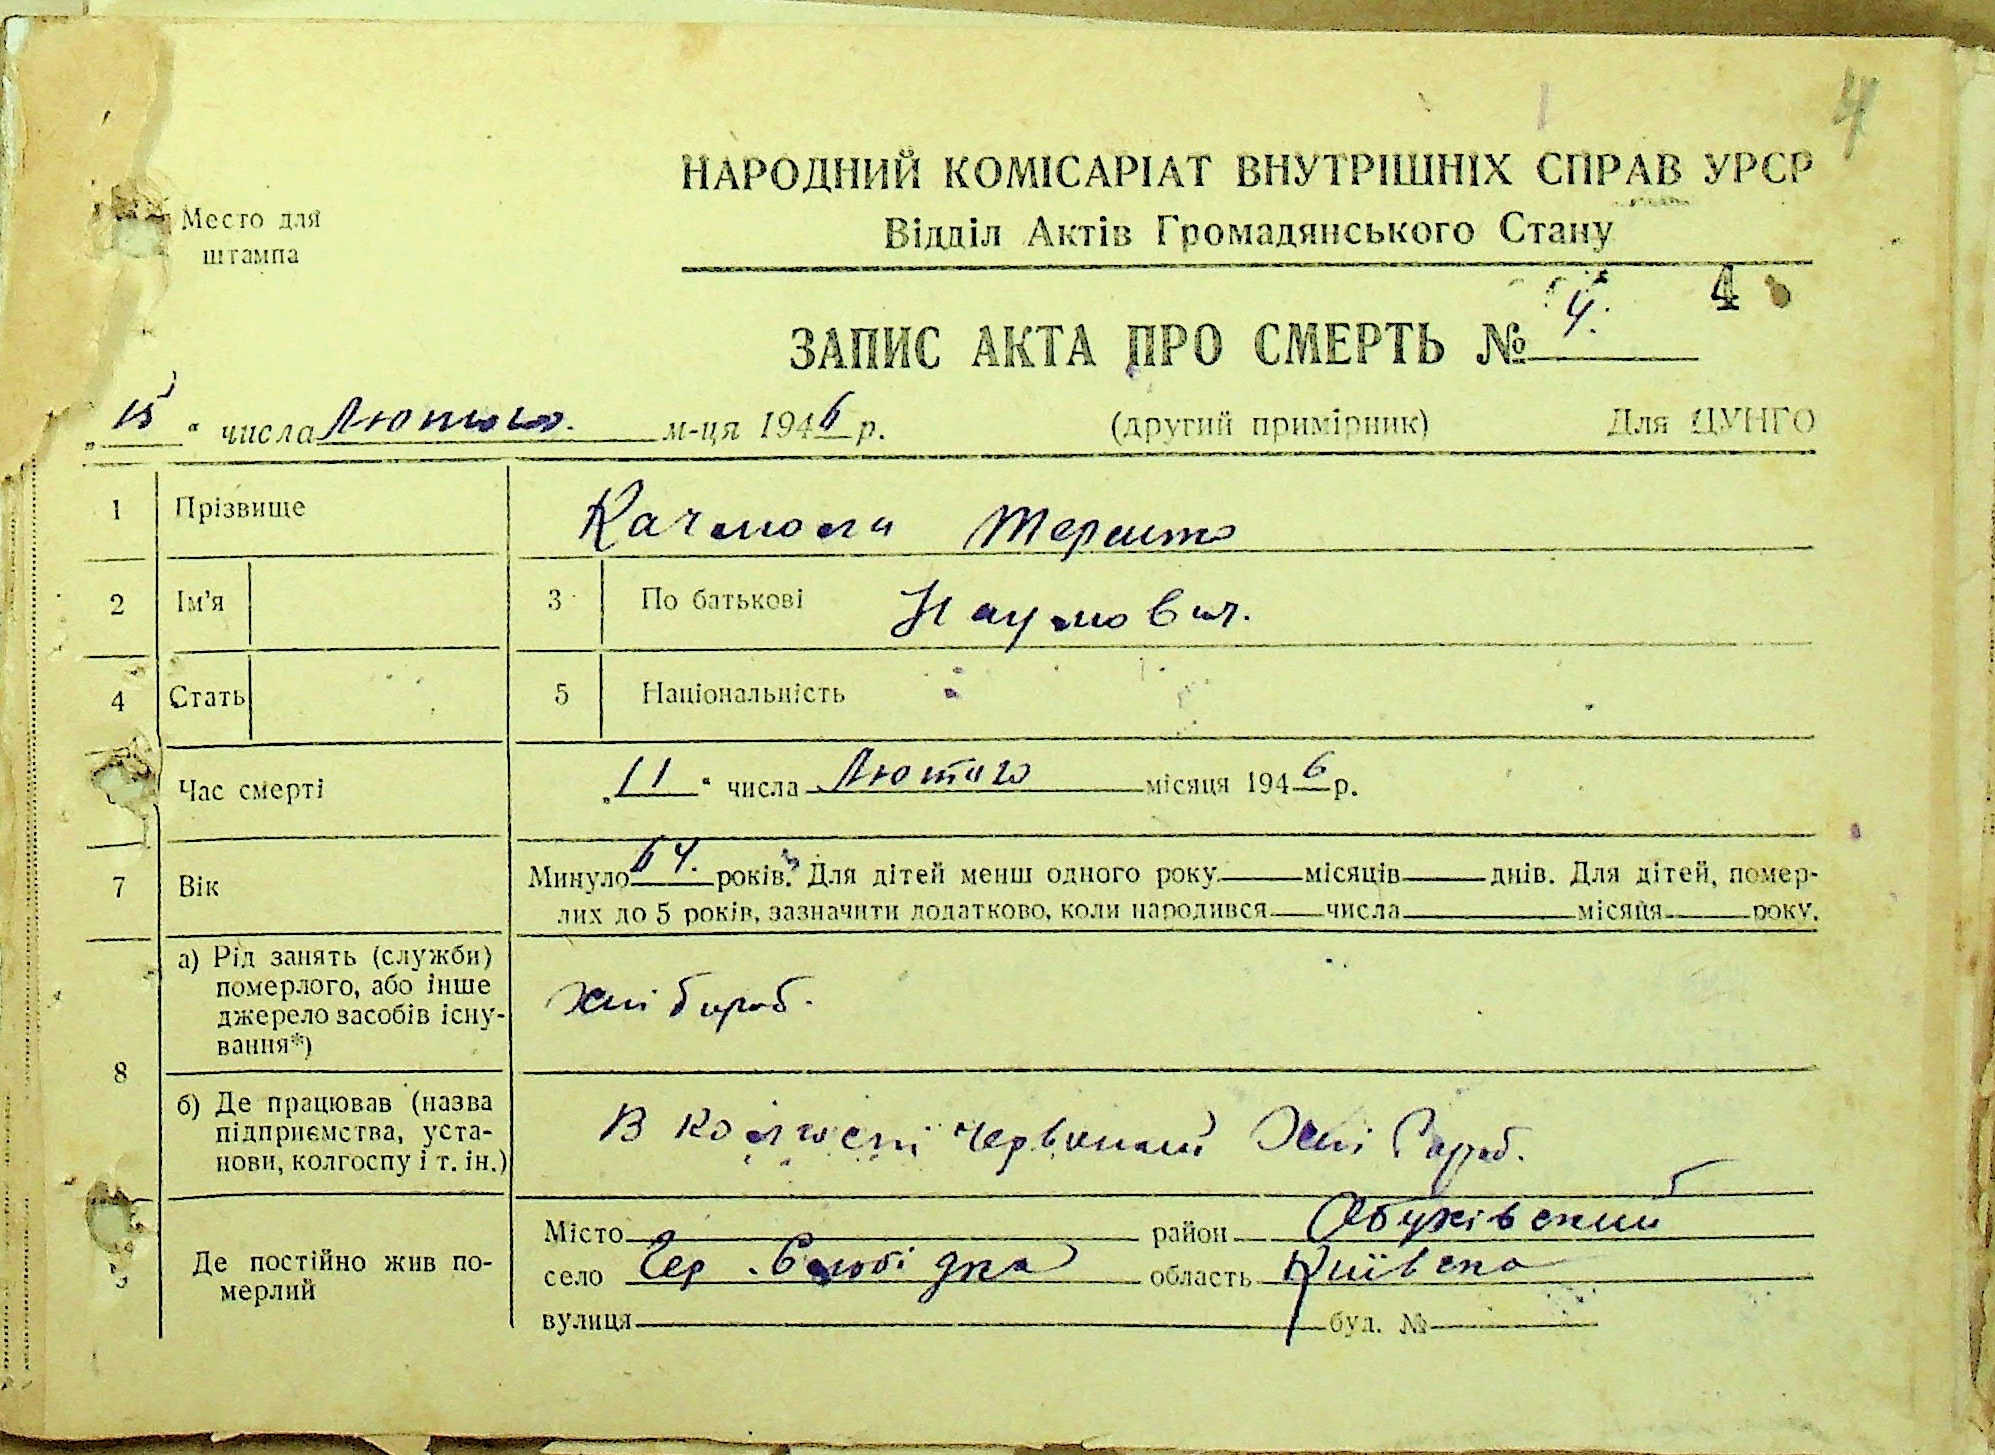 4
НАРОДНИЙ КОМІСАРІАТ ВНУТРІШНІХ СПРАВ УРСР
Место для
штампа
Відділ Актів Громадянського Стану
4
ЗАПИС АКТА ПРО СМЕРТЬ № 4.
„15“ числа Лютого. м-ця 1946 р. (другий примірник) Для ЦУНГО
1 Прізвище
2 Ім'я 3 По батькові Наумович.
4 Стать 5 Національність
Час смерті „11“ числа Лютого місяця 1946 р.
7 Вік Минуло 64. років. Для дітей менш одного року місяців днів. Для дітей, помер-
лих до 5 років, зазначити додатково, коли народився числа місяця року.
8 а) Рід занять (служби)
померлого, або інше
джерело засобів існу-
вання*)
хлібороб.
б) Де працював (назва
підприємства, уста-
нови, колгоспу і т. ін.)
В колгоспі червоний Хлібороб.
Де постійно жив по-
мерлий
Місто район Обухівский
село Чер. Слобідка область Київска
вулиця буд. №